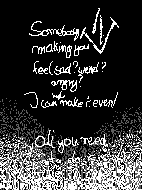 Somebody
making you
feel sad? weird?
angry?
I can make it even!
all you need